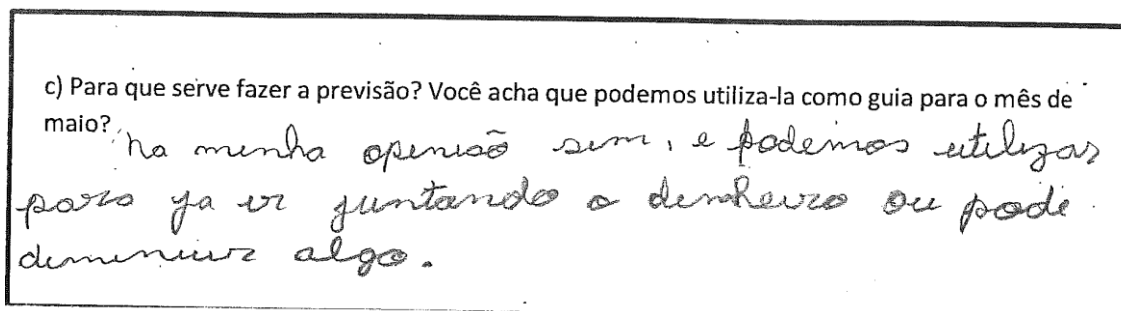 c) Para que serve fazer a previsão? Você acha que podemos utiliza-la como guia para o mês de
maio?
na minha openiaõ sim, e podemos utilizar
para ja ir juntando o dinheiro ou pode
diminuir algo.